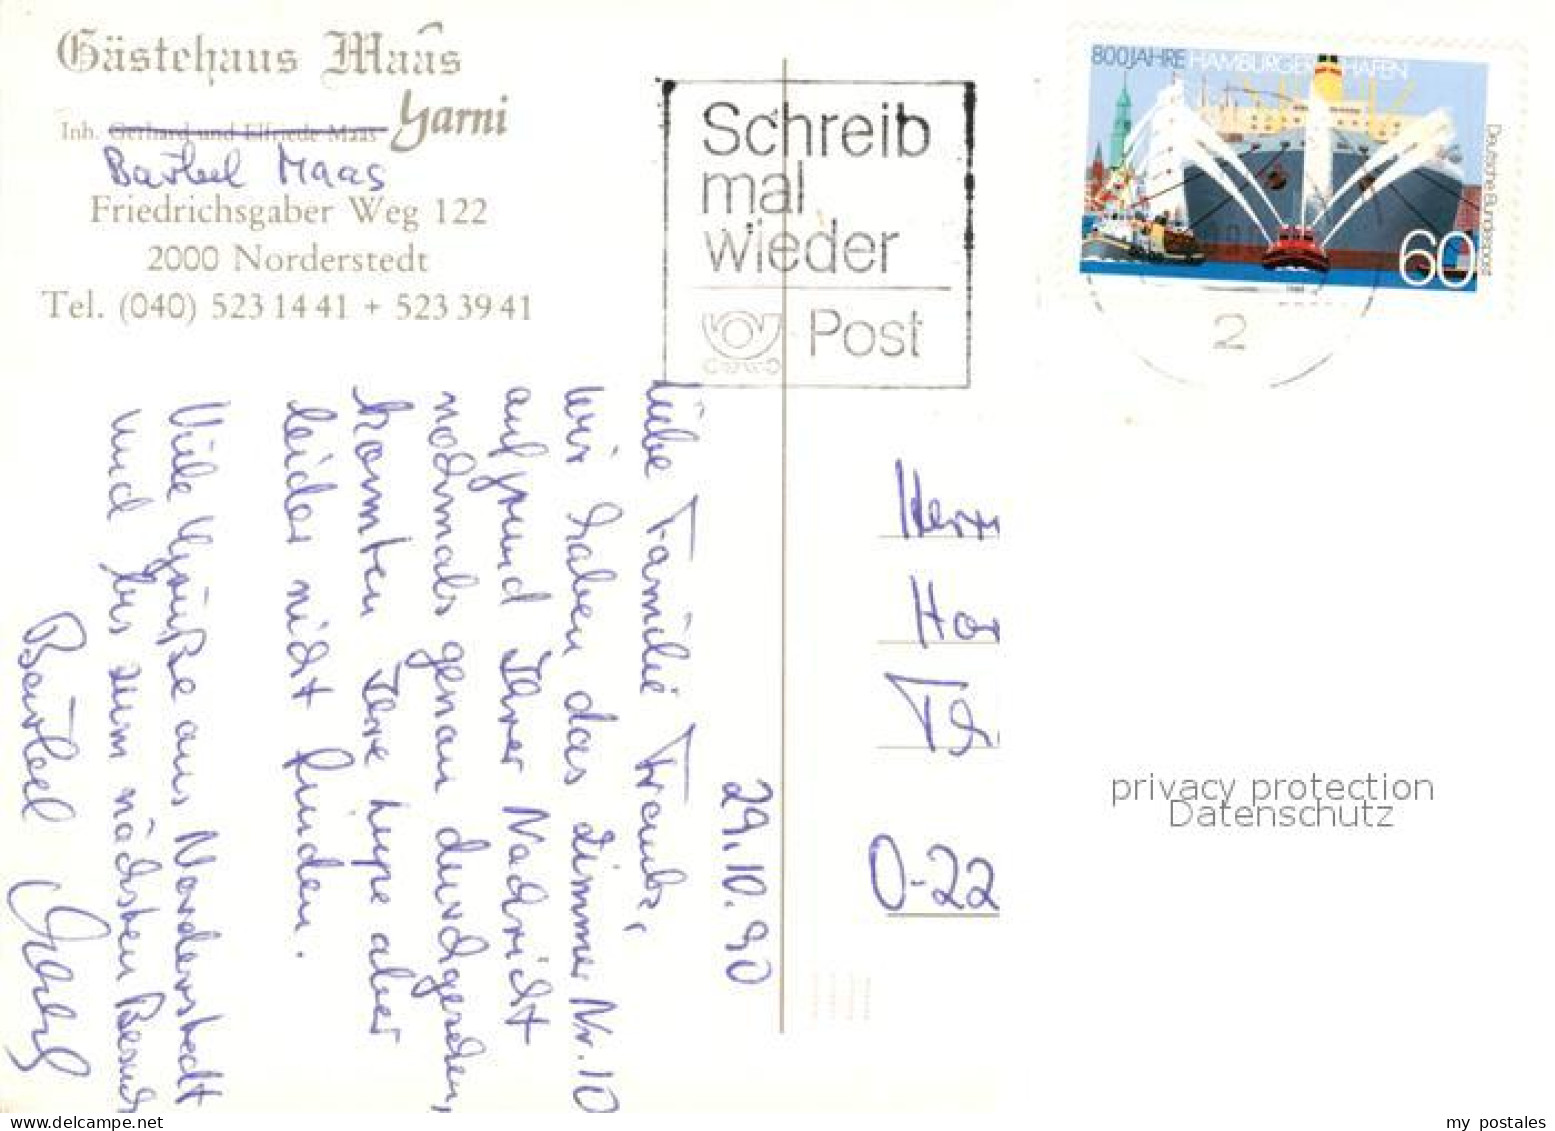 Gästehaus Maas
Garni
Inh. Gerhard und Elfriede Maas
Bärbel Maas
Friedrichsgaber Weg 122
2000 Norderstedt
Tel. (040) 523 14 41 + 523 39 41
Schreib
mal
wieder
Post
800 JAHRE HAMBURGER HAFEN
Deutsche Bundespost
60
2
29.10.90
Liebe Familie
wir haben das Zimmer Nr. 10
aufgrund Ihrer Nachricht
nochmals genau durchgesehen,
konnten Ihre aber
leider nicht finden.
Viele Grüße aus Norderstedt
und bis zum nächsten Besuch
Bärbel Maas
Herrn
O-22
privacy protection
Datenschutz
my_postales